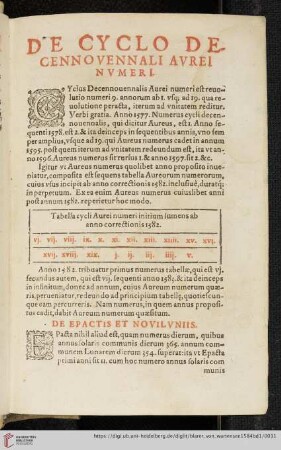 DE CYCLO DE-
CENNOVENNALI AVREI
NVMERI.
CYclus Decennouennalis Aurei numeri est reuo-
lutio numeri 19. annorum ab 1. vsq; ad 19. qua re-
uolutione peracta, iterum ad vnitatem reditur.
Verbi gratia. Anno 1577. Numerus cycli decen-
nouennalis, qui dicitur Aureus, est 1. Anno se-
quenti 1578. est 2. & ita deinceps in sequentibus annis, vno sem
per amplius, vsque ad 19. qui Aureus numerus cadet in annum
1595. post quem iterum ad vnitatem redeundum est, ita vt an-
no 1596. Aureus numerus sit rursus 1. & anno 1597. sit 2. &c.
Igitur vt Aureus numerus quolibet anno proposito inue-
niatur, composita est sequens tabella Aureorum numerorum,
cuius vsus incipit ab anno correctionis 1582. inclusiuè, duratq;
in perpetuum. Ex ea enim Aureus numerus cuiuslibet anni
post annum 1582. reperietur hoc modo.
Tabella cycli Aurei numeri initium sumens ab
anno correctionis 1582.
vj. vij. viij. ix. x. xj. xij. xiij. xiiij. xv. xvj.
xvij. xviij. xix. j. ij. iij. iiij. v.
Anno 1582. tribuatur primus numerus tabellæ, qui est vj.
secundus autem, qui est vij. sequenti anno 1583. & ita deinceps
in infinitum, donec ad annum, cuius Aureum numerum quæ-
ris, perueniatur, redeundo ad principium tabellæ, quotiescun-
que eam percurreris. Nam numerus, in quem annus proposi-
tus cadit, dabit Aureum numerum quæsitum.
DE EPACTIS ET NOVILVNIIS.
EPacta nihil aliud est, quàm numerus dierum, quibus
annus solaris communis dierum 365. annum com-
munem Lunarem dierum 354. superat: ita vt Epacta
primi anni sit 11. cum hoc numero annus solaris com
munis
https://digi.ub.uni-heidelberg.de/diglit/blarer_von_wartensee1584bd1/0031